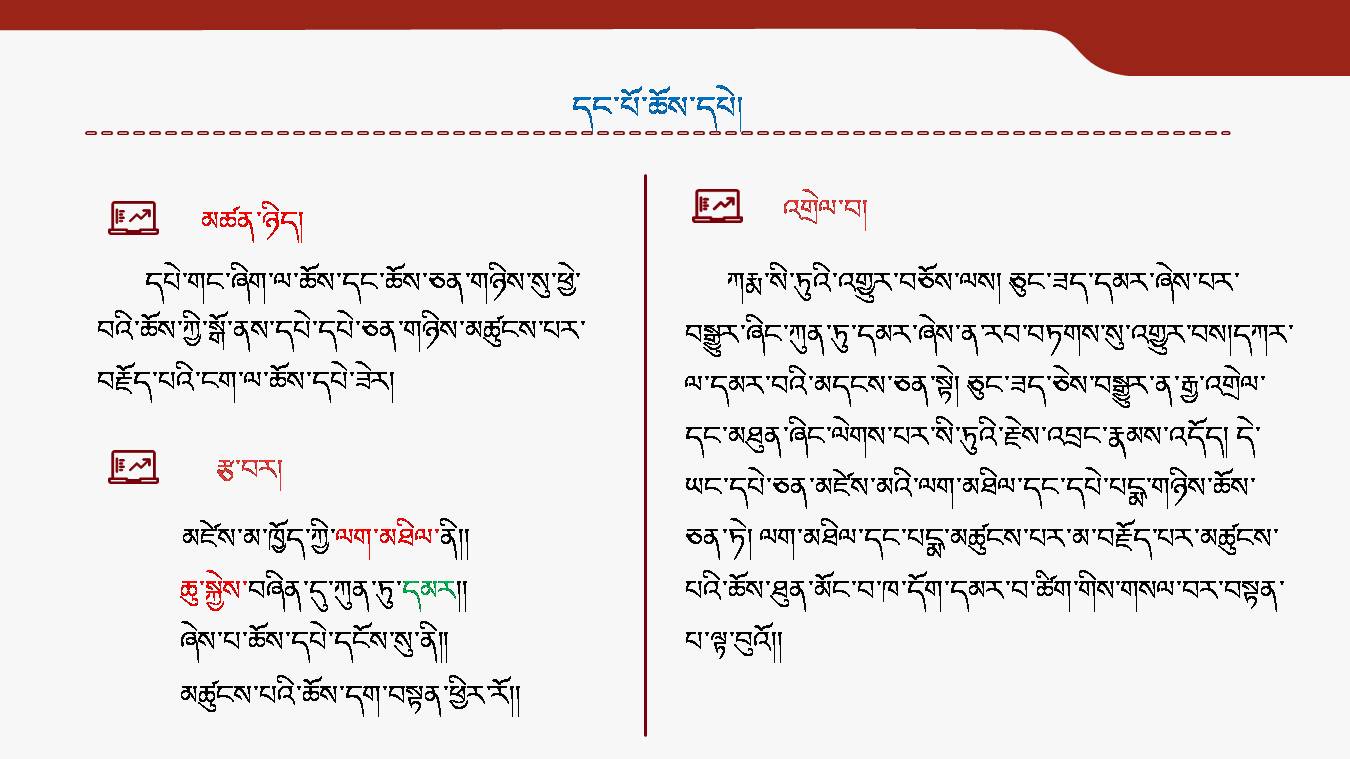 དང་པོ་ཆོས་དཔེ།
མཚན་ཉིད།
དཔེ་གང་ཞིག་ལ་ཆོས་དང་ཆོས་ཅན་གཉིས་སུ་ཕྱེ་
བའི་ཆོས་ཀྱི་སྒོ་ནས་དཔེ་དཔེ་ཅན་གཉིས་མཚུངས་པར་
བརྗོད་པའི་ངག་ལ་ཆོས་དཔེ་ཟེར།
རྩ་བར།
མཛེས་མ་ཁྱོད་ཀྱི་ལག་མཐིལ་ནི།།
ཆུ་སྐྱེས་བཞིན་དུ་ཀུན་ཏུ་དམར།།
ཞེས་པ་ཆོས་དཔེ་དངོས་སུ་ནི།།
མཚུངས་པའི་ཆོས་དག་བསྟན་ཕྱིར་རོ།།
འགྲེལ་བ།
ཀརྨ་སི་ཏུའི་འགྱུར་བཅོས་ལས། ཅུང་ཟད་དམར་ཞེས་པར་
བསྒྱུར་ཞིང་ཀུན་ཏུ་དམར་ཞེས་ན་རབ་བཏགས་སུ་འགྱུར་བས།དཀར་
ལ་དམར་བའི་མདངས་ཅན་སྟེ། ཅུང་ཟད་ཅེས་བསྒྱུར་ན་རྒྱ་འགྲེལ་
དང་མཐུན་ཞིང་ལེགས་པར་སི་ཏུའི་རྗེས་འབྲང་རྣམས་འདོད། དེ་
ཡང་དཔེ་ཅན་མཛེས་མའི་ལག་མཐིལ་དང་དཔེ་པདྨ་གཉིས་ཆོས་
ཅན་ཏེ། ལག་མཐིལ་དང་པདྨ་མཚུངས་པར་མ་བརྗོད་པར་མཚུངས་
པའི་ཆོས་ཐུན་མོང་བ་ཁ་དོག་དམར་བ་ཚིག་གིས་གསལ་བར་བསྟན་
པ་ལྟ་བུའོ།།